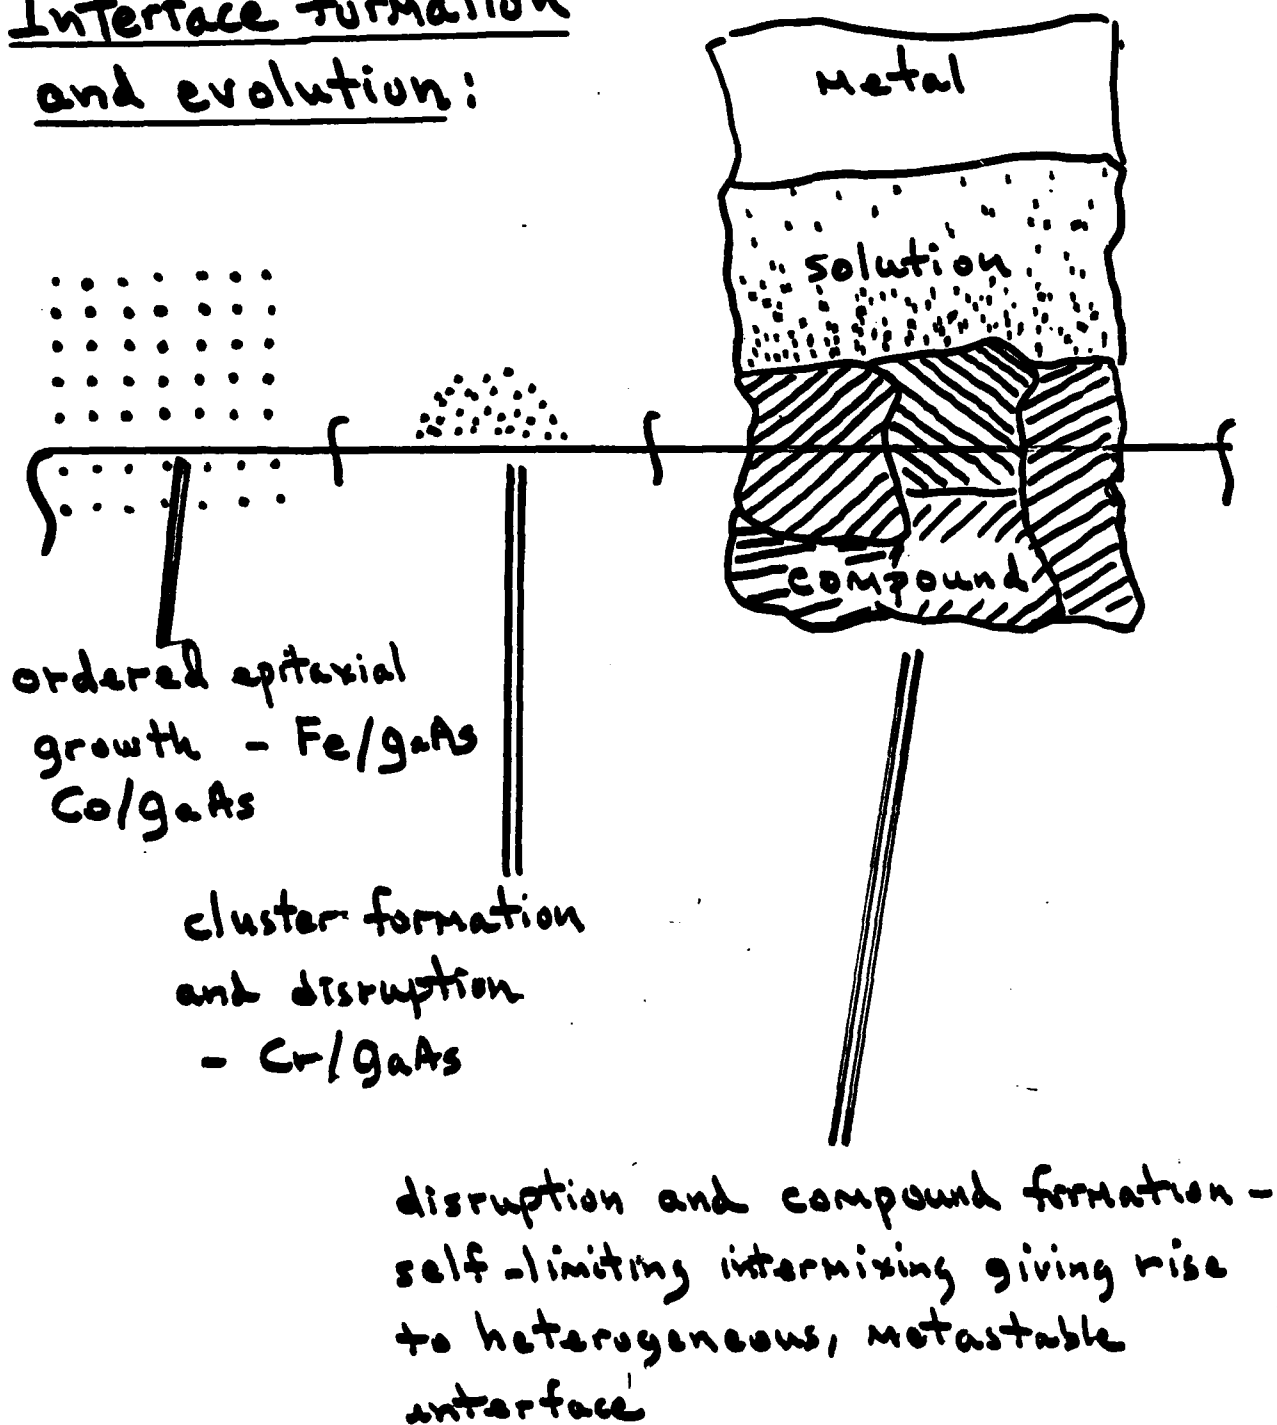 Interface formation
and evolution:
Metal
solution
compound
ordered epitaxial
growth - Fe/GaAs
Co/GaAs
cluster formation
and disruption
- Cr/GaAs
disruption and compound formation -
self-limiting intermixing giving rise
to heterogeneous, metastable
interface